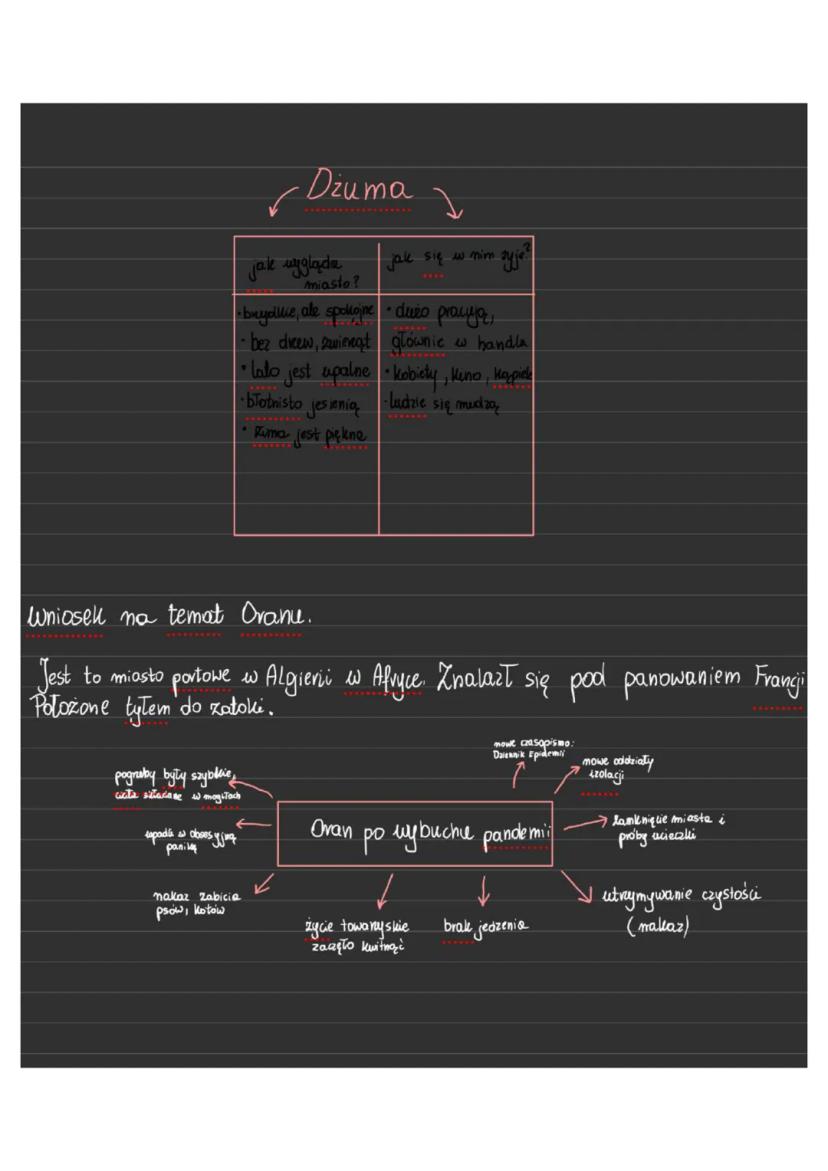 Dżuma
jak wygląda
miasto?
jak się w nim żyje?
• brzydkie, ale spokojne
• bez drzew, zwierząt
• lato jest upalne
• błotnisto jesienią
• zima jest piękna
• dużo pracują,
głównie w handlu
• kobiety, kino, kąpiele
• ludzie się nudzą
Wniosek na temat Oranu.
Jest to miasto portowe w Algierii w Afryce. Znalazł się pod panowaniem Francji
Położone tyłem do zatoki.
nowe czasopismo:
Dziennik Epidemii
nowe oddziały
izolacji
pogrzeby były szybkie,
ciała składane w mogiłach
Oran po wybuchu pandemii
zamknięcie miasta i
próby ucieczki
wpadli w obsesyjną
panikę
nakaz zabicia
psów, kotów
utrzymywanie czystości
(nakaz)
życie towarzyskie
zaczęło kwitnąć
brak jedzenia